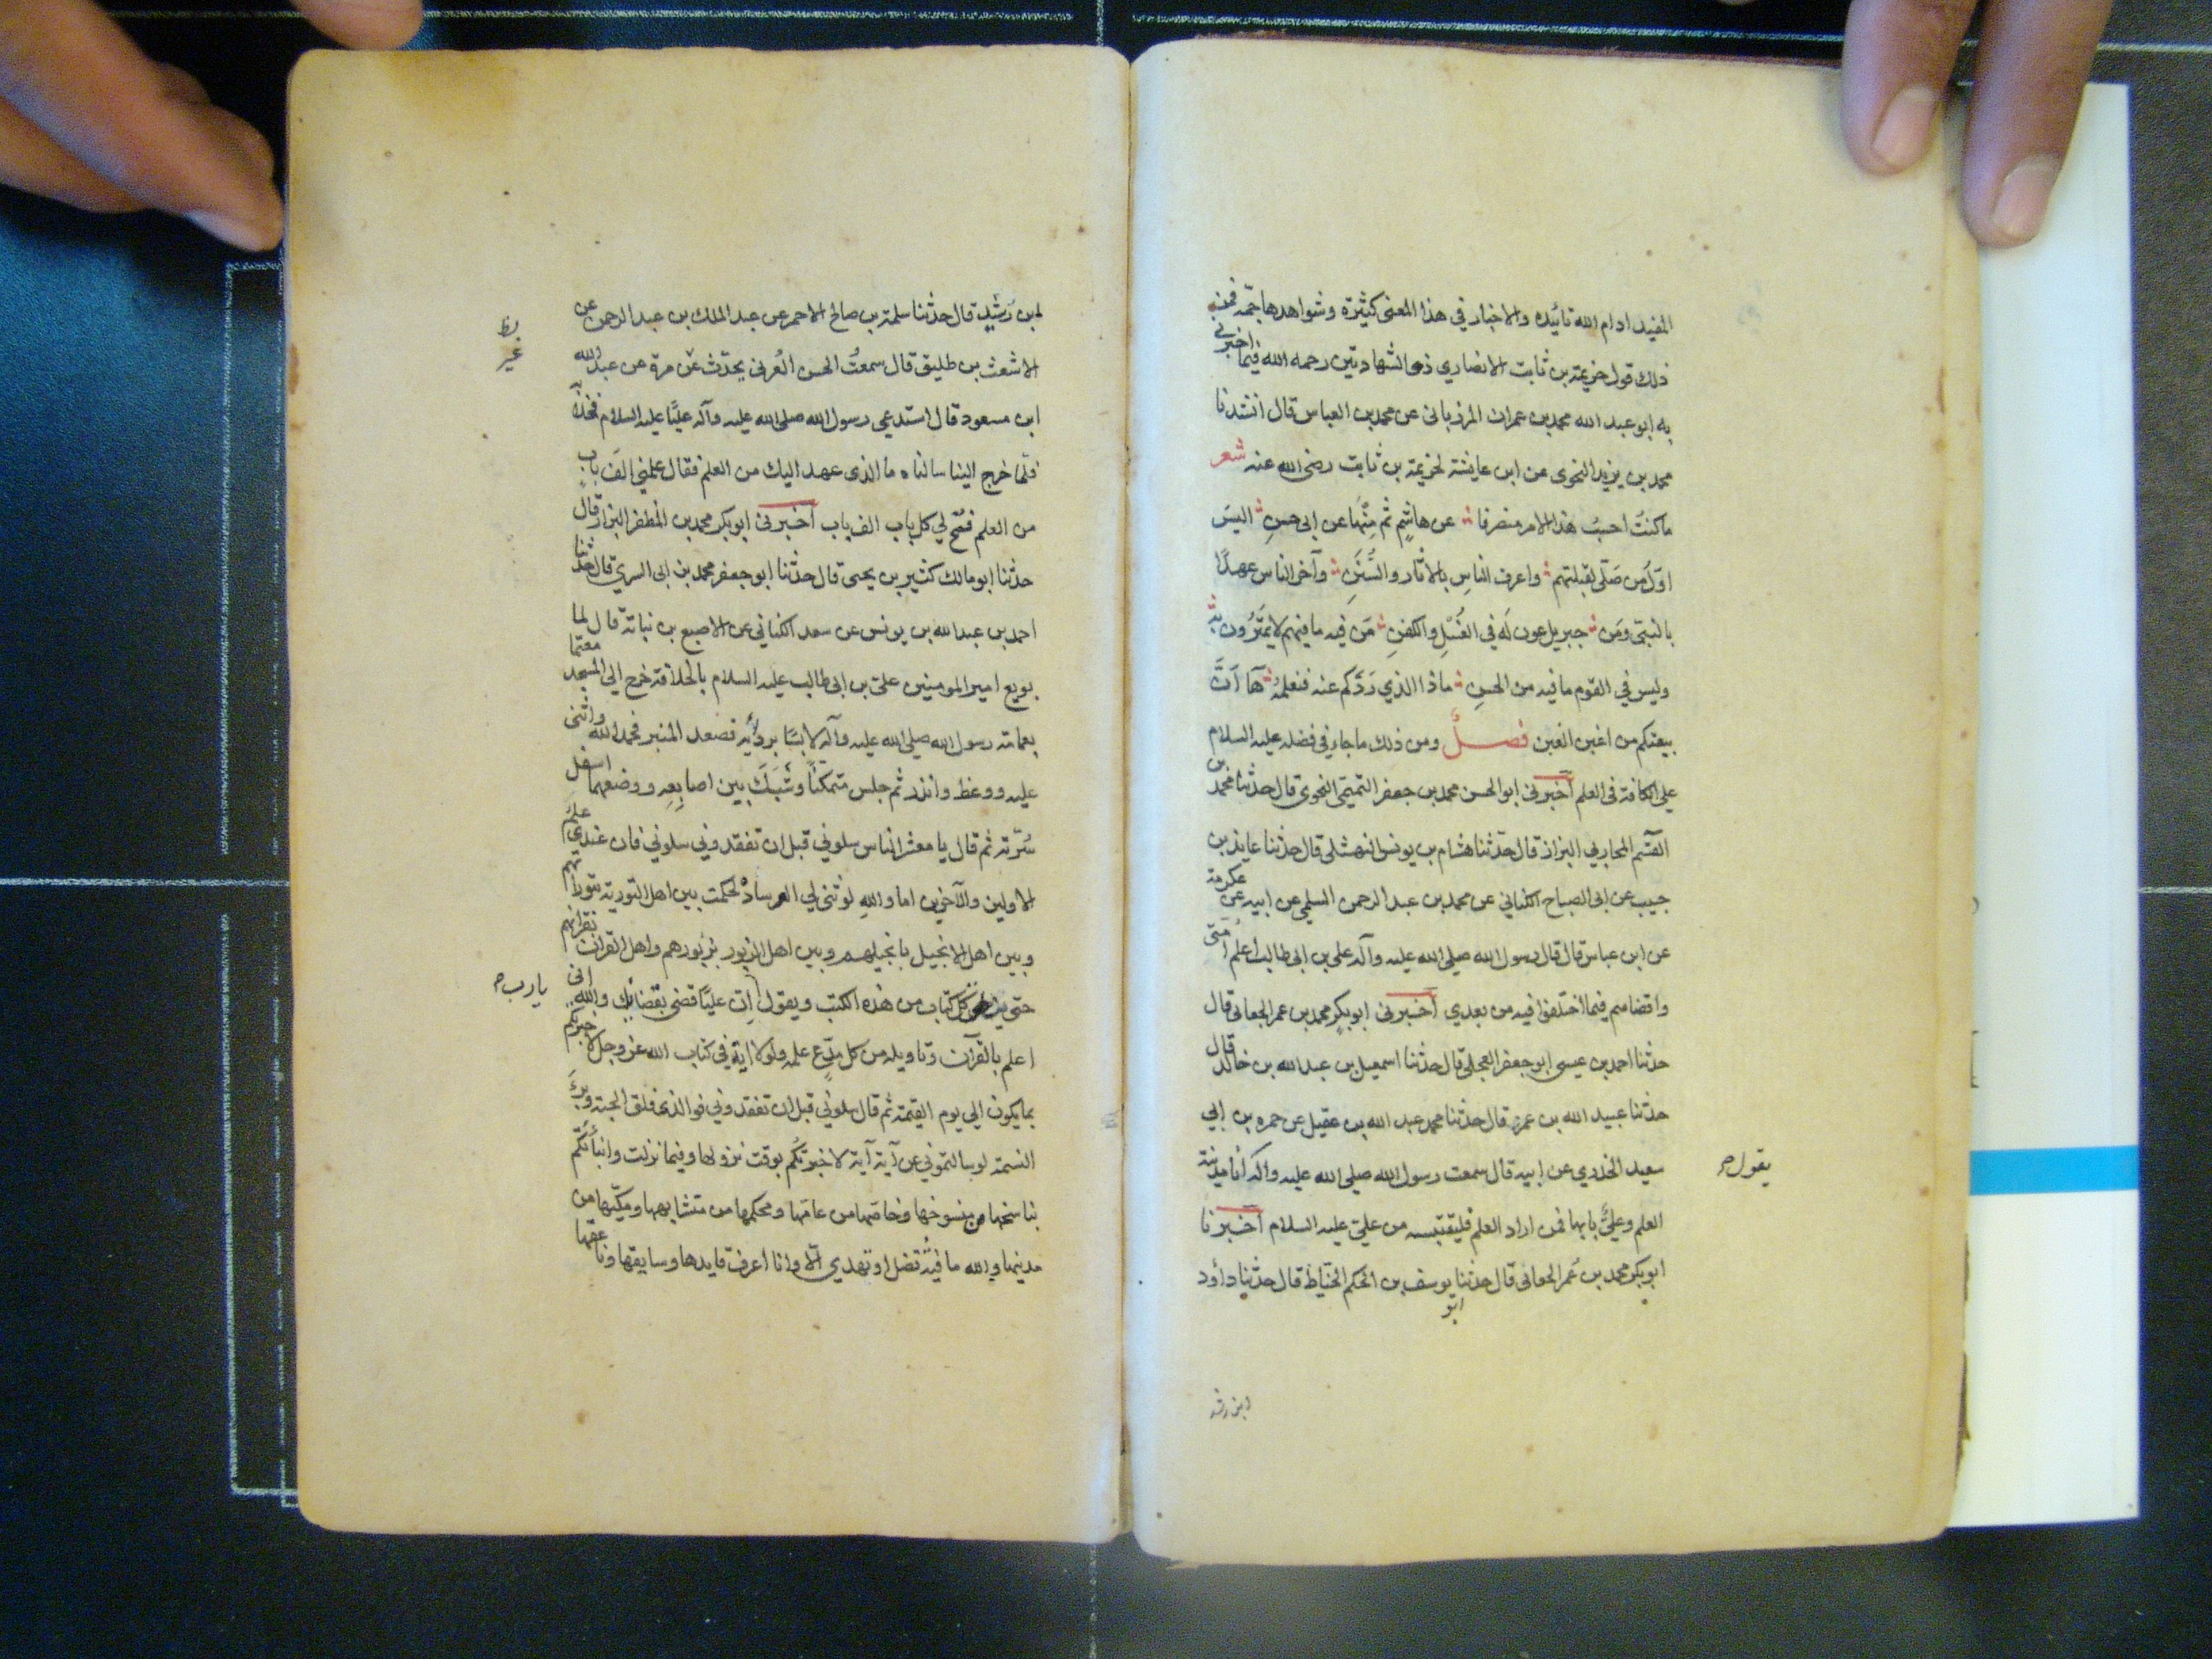 المفيد ادام الله تائيده والاخبار في هذا المعنى كثيرة وشواهدها جمّه فمن
ذلك قول خزيمة بن ثابت الانصاري ذي الشهادتين رحمه الله فيما اخبرني
به ابو عبد الله محمد بن عمران المرزباني عن محمد بن العباس قال انشدنا
محمد بن يزيد النحوي عن ابن عايشة لخزيمة بن ثابت رضي الله عنه شعر
ما كنتُ احسبُ هذا الامر منصرفا عن هاشمٍ ثم مِنْها عن ابي حسنِ اليسَ
اوّلَ من صَلّى لقبلتهم واعرف الناسِ بالاثار والسُّنَنِ وآخر الناس عهدًا
بالنبيّ ومَن جبريل عون لَه في الغُسْلِ والكفنِ مَن فيه ما فيهم لا يَمتَرُون به
وليس في القوم ما فيه من الحسنِ ماذا الذي رَدَّكم عنه فنعلمهُ ها اَنَّ
بيعتكم من اغبن الغبن فصـل ومن ذلك ما جاء في فضله عليه السلام
على الكافة في العلم اخبرني ابو الحسن محمد بن جعفر التميمي النحوي قال حدثنا محمد بن
القسم المحاربي البزاز قال حدّثنا هشام بن يونس النهشلي قال حدثنا عايذ بن
حبيب عن ابي الصباح الكناني عن محمد بن عبد الرحمن السلمي عن ابيه عن عكرمة
عن ابن عباس قال قال رسول الله صلى الله عليه وآله علي بن ابي طالب اعلم امتي
واقضاهم فيما اختلفوا فيه من بعدي اخبرني ابو بكر محمد بن عمر الجعابي قال
حدثنا احمد بن عيسى ابو جعفر العجلي قال حدثنا اسمعيل بن عبد الله بن خالد قال
حدّثنا عبيد الله بن عمرو قال حدّثنا محمد عبد الله بن عقيل عن حمزه بن ابي
سعيد الخدري عن ابيه قال سمعت رسول الله صلى الله عليه وآله انا مدينة
يقول
العلم وعليٌّ بابها فمن اراد العلم فليقتبسه من عليّ عليه السلام اخبرنا
ابو بكر محمد بن عُمر الجعابي قال حدثنا يوسف بن الحكم الحنّاط قال حدّثنا داؤد
ابو
ابن رشيد
ابن رَشيدٍ قال حدّثنا سلمة بن صالح الاحمر عن عبد الملك بن عبد الرحمن عن
الاشعث بن طليق قال سمعتُ الحسن العُرني يحدّث عن مرة عن عبد الله
ابن مسعود قال استدعى رسول الله صلى الله عليه وآله عليًّا عليه السلام فخلا به
فلمّا خرج الينا سالناه ما الذي عهد اليك من العلم فقال علمني الفَ بابٍ
من العلم فتح لي كل باب الف باب اخبرني ابو بكر محمد بن المظفر البزاز قال
حدثنا ابو مالك كثير بن يحيى قال حدّثنا ابو جعفر محمد بن ابي السري قال حدثنا
احمد بن عبد الله بن يونس عن سعد الكناني عن الاصبغ بن نباتة قال لما
بويع امير المومنين علي بن ابي طالب عليه السلام بالخلافة خرج الى المسجد معتما
بعمامة رسول الله صلى الله عليه وآله لابسًا برديْه فصعد المنبر فحمد الله واثنى
عليه ووعظ وانذر ثم جلس متمكنًا وشَبَكَ بين اصابعِه ووضعهما اسفل
سُرّته ثم قال يا معشر الناس سلوني قبل ان تفقدوني سلوني فان عندي علم
الاولين والآخرين اما والله لو ثنى لي الوسادة لحكمت بين اهل التورية بتوراتهم
وبين اهل الانجيل بانجيلهم وبين اهل الزبور بزبورهم واهل القران بقرانهم
حتى ينهي كل كتاب من هذه الكتب ويقول اِنّ عليًّا قضى بقضائك والله اني
يا رب
اعلم بالقرآن وتاويله من كل مدّعٍ علمه ولولا اية في كتاب الله عز وجل لاخبرتكم
بما يكون الى يوم القيمة ثم قال سلوني قبل ان تفقدوني فوالذي فلق الحبة وبرَءَ
النسمة لو سالتموني عن آية آية لاخبرتُكم بوقت نزولها وفيما نزلت وانبأتُكم
بناسخها من منسوخها وخاصّها من عامّها ومحكمها من متشابهها ومكيّها من
مدنيها والله ما فئة تضل او تهدي الّا وانا اعرف قايدها وسايقها وناعقها